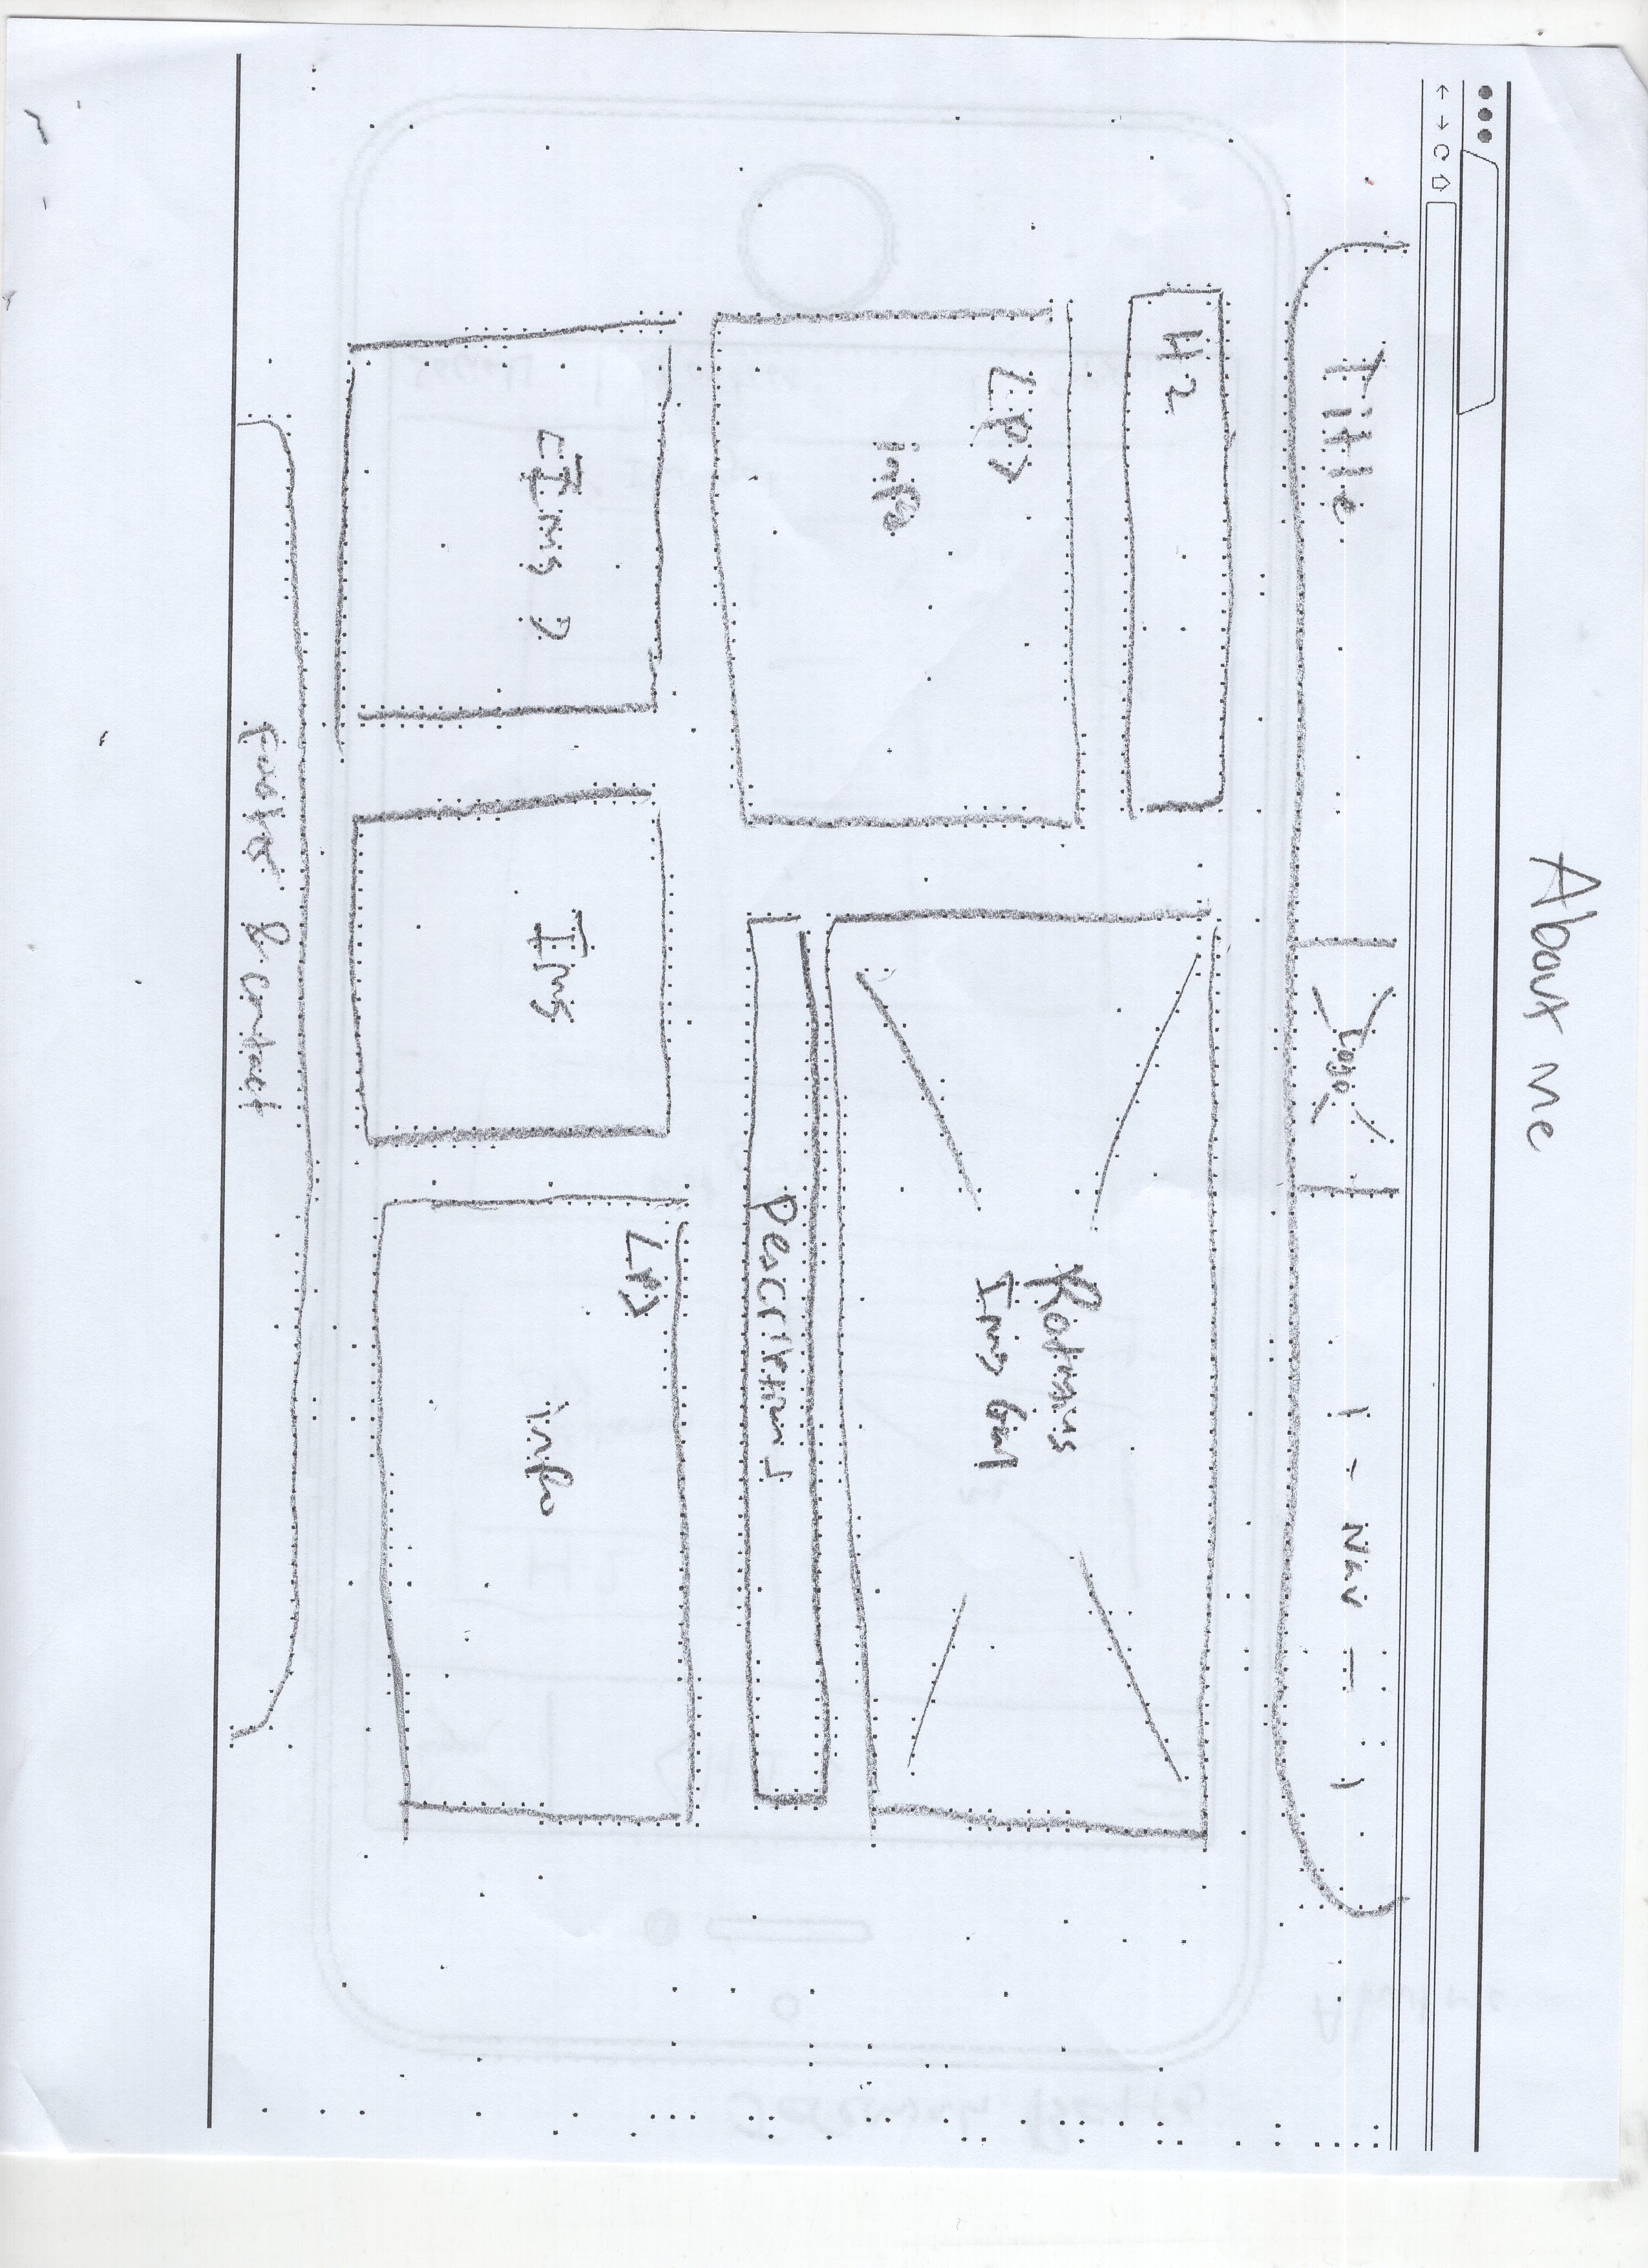 About me
Title
Logo
| - Nav - |
H2
<P>
info
Rotating
Img Gal
Descriptions
<Img>
Img
<P>
info
Footer & contact